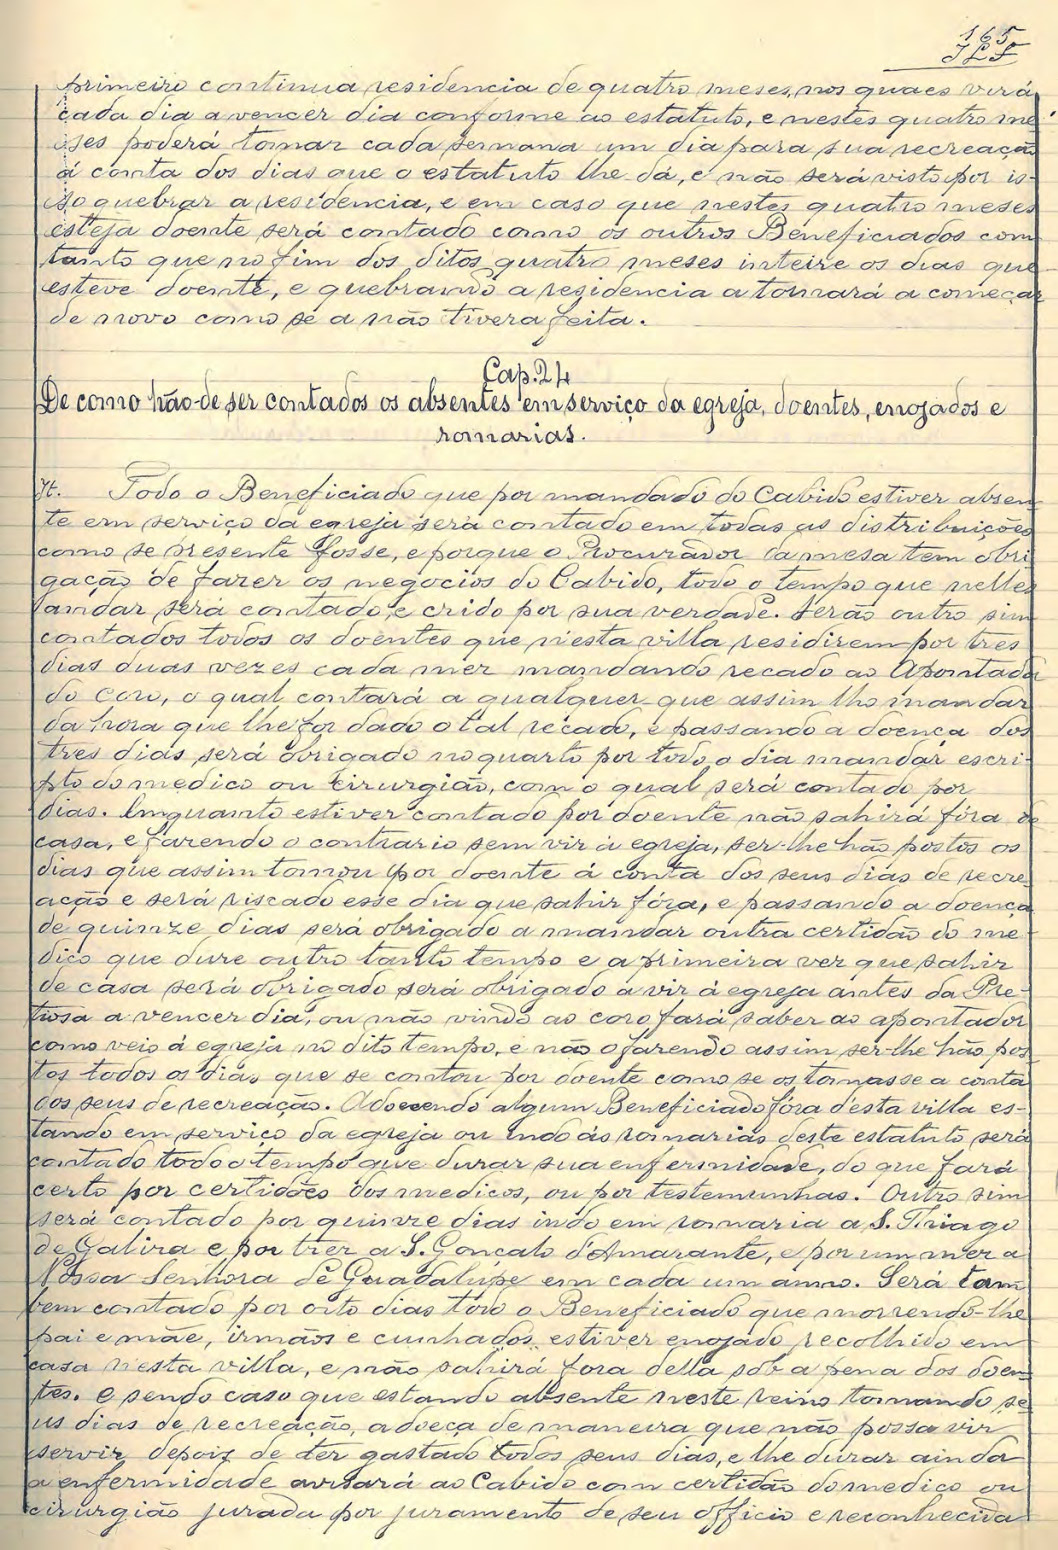 165
primeiro continua residencia de quatro meses, nos quaes virá
cada dia a vencer dia conforme ao estatuto, e nestes quatro me-
ses poderá tomar cada semana um dia para sua recreação
á conta dos dias que o estatuto lhe dá, e não será visto por is-
so quebrar a residencia, e em caso que nestes quatro meses
esteja doente será contado como os outros Beneficiados com
tanto que no fim dos ditos quatro meses inteire os dias que
esteve doente, e quebrando a residencia a tomará a começar
de novo como se a não tivera feita.
Cap. 24
De como hão-de ser contados os absentes em serviço da egreja, doentes, enojados e
romarias.
It. Todo o Beneficiado que por mandado do Cabido estiver absen-
te em serviço da egreja será contado em todas as distribuições
como se presente fosse, e porque o Procurador da mesa tem obri
gação de fazer os negocios do Cabido, todo o tempo que nelles
andar será contado, e crido por sua verdade. Serão outro sim
contados todos os doentes que n'esta villa residirem por tres
dias duas vezes cada mez mandando recado ao Apontador
do Coro, o qual contará a qualquer que assim lho mandar
da hora que lhe for dado o tal recado, e passando a doença dos
tres dias será obrigado no quarto por todo o dia mandar escri-
pto do medico ou cirurgião, com o qual será contado por
dias. Emquanto estiver contado por doente não sahirá fóra de
casa, e fazendo o contrario sem vir á egreja, ser-lhe hão postos os
dias que assim tomou por doente á conta dos seus dias de recre-
ação e será riscado esse dia que sahir fóra, e passando a doença
de quinze dias será obrigado a mandar outra certidão do me
dico que dure outro tanto tempo e a primeira vez que sahir
de casa será obrigado será obrigado a vir á egreja antes da Pre-
tiosa a vencer dia, ou não vindo ao coro fará saber ao apontador
como veio á egreja no dito tempo, e não o fazendo assim ser-lhe hão pos
tos todos os dias que se contou por doente como se os tomasse a conta
dos seus de recreação. Adoecendo algum Beneficiado fóra d'esta villa es-
tando em serviço da egreja ou indo ás romarias deste estatuto será
contado todo o tempo que durar sua enfermidade, do que fará
certo por certidões dos medicos, ou por testemunhas. Outro sim
será contado por quinze dias indo em romaria a S. Thiago
de Galiza e por trez a S. Gonçalo d'Amarante, e por um mez a
Nossa Senhora de Guadalupe em cada um anno. Será tam
bem contado por oito dias todo o Beneficiado que morrendo-lhe
pai e mãe, irmãos e cunhados estiver enojado recolhido em
casa n'esta villa, e não sahirá fora della sob a pena dos doen-
tes. e sendo caso que estando absente neste reino tomando se
us dias de recreação, adoeça de maneira que não possa vir
servir depois de ter gastado todos seus dias, e lhe durar ainda
a enfermidade avisará ao Cabido com certidão do medico ou
cirurgião jurada por juramento de seu officio e reconhecida